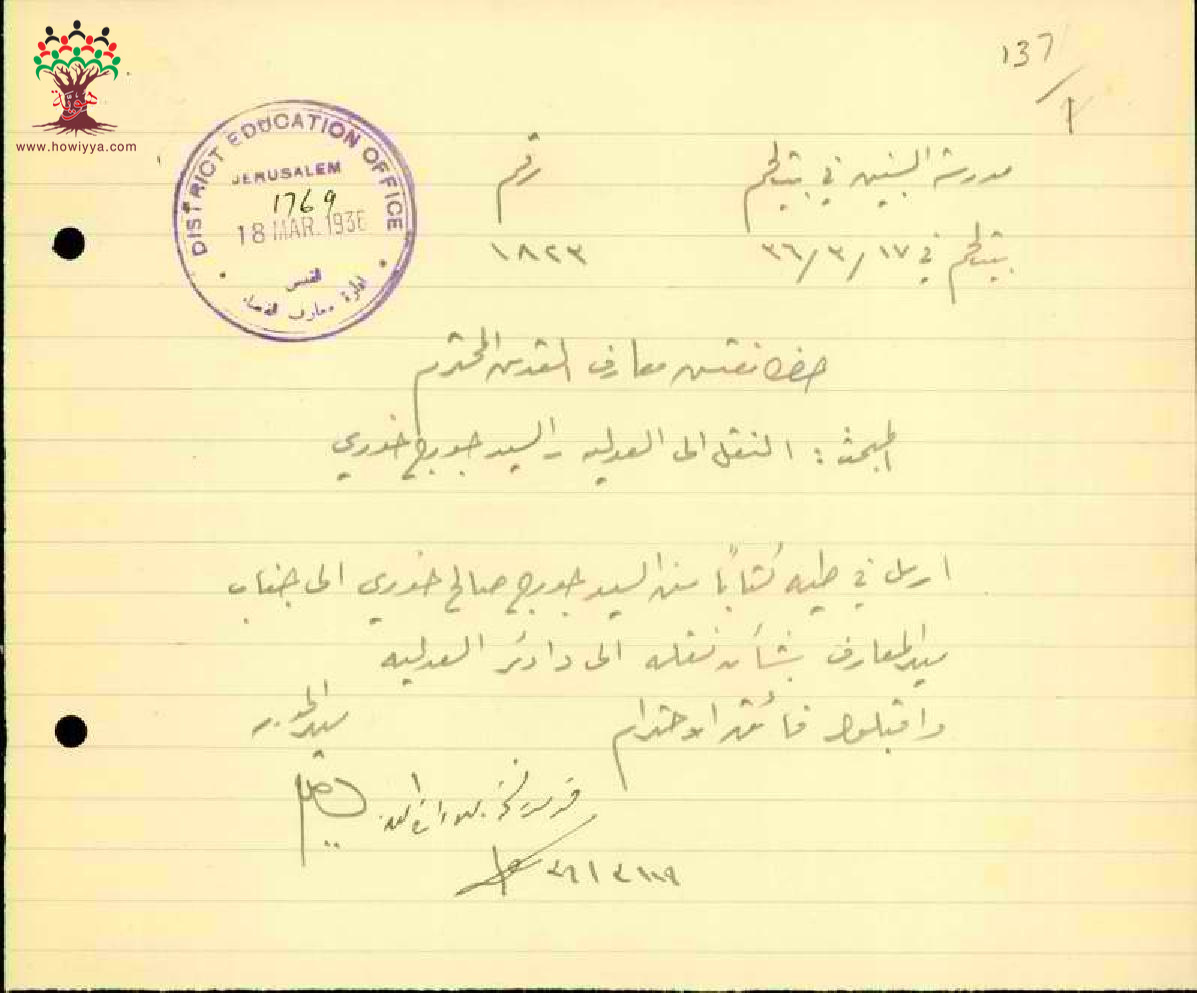 هوية
www.howiyya.com
137
1
DISTRICT EDUCATION OFFICE
JERUSALEM
1769
18 MAR. 1936
القدس
ادارة معارف
مدرسة البنين في بيت لحم
رقم
بيت لحم في ١٧/٣/٣٦
١٨٢٣
حضرة مفتش معارف القدس المحترم
المبحث : النقل الى العدلية - السيد جورج خوري
ارسل في طيه كتاباً من السيد جورج صالح خوري الى جناب
مدير المعارف بشأن نقله الى دوائر العدلية
واقبلوا فائق الاحترام
مدير المدرسة